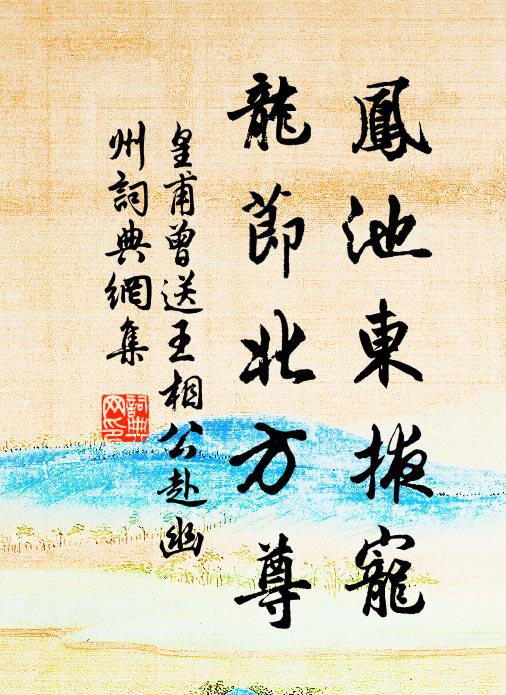 鳳池東掖寵
龍節北方尊
皇甫曾送王相公赴幽
州詞典網集
詞典
網印